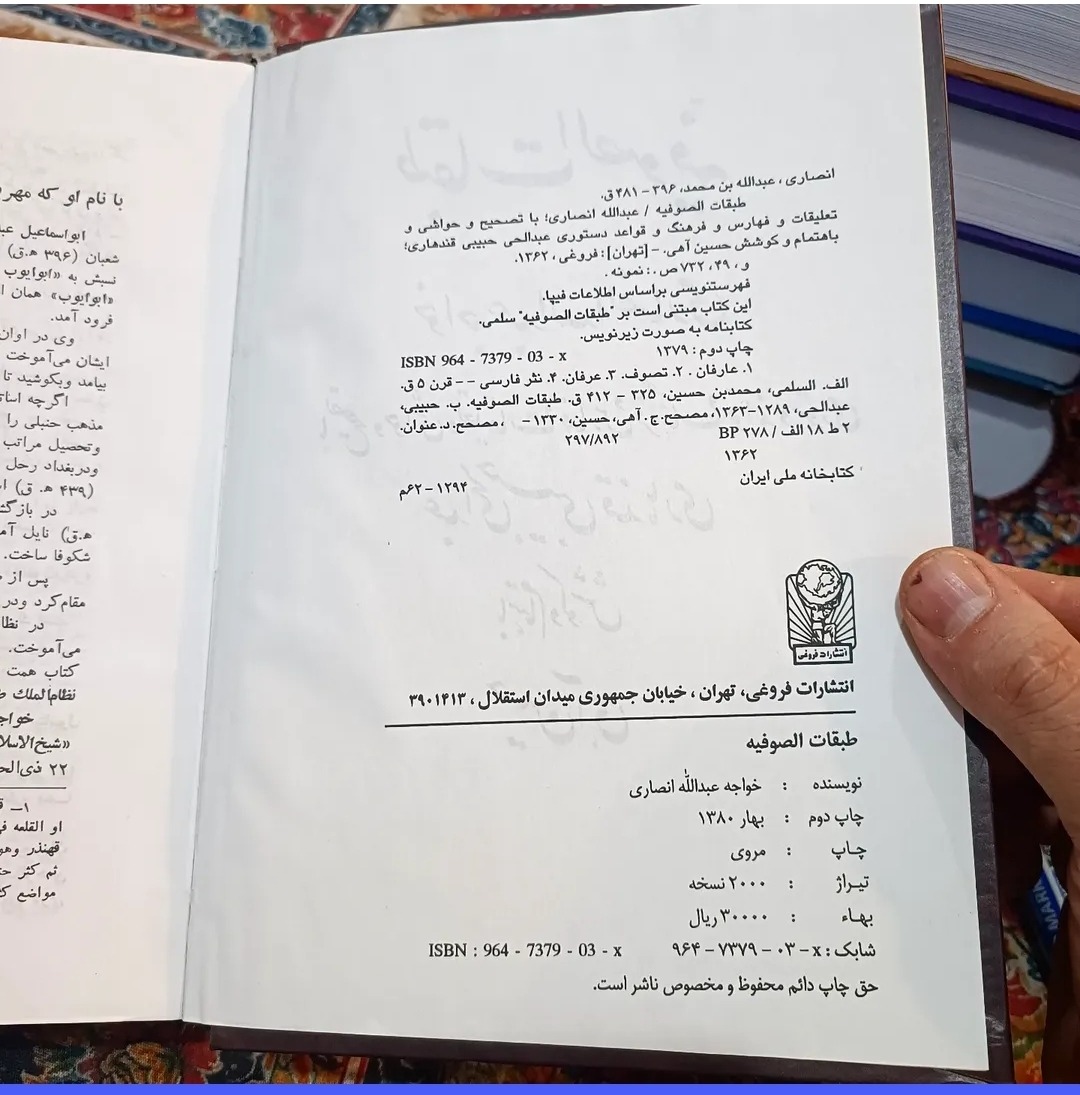 انصاری، عبدالله بن محمد، ۳۹۶ – ۴۸۱ ق.
طبقات الصوفیه / عبدالله انصاری؛ با تصحیح و حواشی و
تعلیقات و فهارس و فرهنگ و قواعد دستوری عبدالحی حبیبی قندهاری؛
باهتمام و کوشش حسین آهی. – [تهران]: فروغی، ۱۳۶۲.
و، ۴۹، ۷۳۲ ص.: نمونه.
فهرستنویسی براساس اطلاعات فیپا.
این کتاب مبتنی است بر "طبقات الصوفیه" سلمی.
کتابنامه به صورت زیرنویس.
چاپ دوم: ۱۳۷۹ ISBN 964 - 7379 - 03 - x
۱. عارفان. ۲. تصوف. ۳. عرفان. ۴. نثر فارسی -- قرن ۵ ق.
الف. السلمی، محمدبن حسین، ۳۲۵ – ۴۱۲ ق. طبقات الصوفیه. ب. حبیبی،
عبدالحی، ۱۲۸۹-۱۳۶۳، مصحح. ج. آهی، حسین، ۱۳۳۰- ، مصحح. د. عنوان.
۲ ط ۱۸ الف / ۲۷۸ BP ۲۹۷/۸۹۲
۱۳۶۲
کتابخانه ملی ایران ۱۲۹۴ – ۶۲م
انتشارات فروغی
انتشارات فروغی، تهران، خیابان جمهوری میدان استقلال، ۳۹۰۱۴۱۳
طبقات الصوفیه
نویسنده : خواجه عبدالله انصاری
چاپ دوم : بهار ۱۳۸۰
چاپ : مروی
تیراژ : ۲۰۰۰ نسخه
بهاء : ۳۰۰۰۰ ریال
شابک: x – ۰۳ – ۷۳۷۹ – ۹۶۴ ISBN : 964 - 7379 - 03 - x
حق چاپ دائم محفوظ و مخصوص ناشر است.
با نام او که
ابواسماعیل
شعبان (۳۹۶ ه.ق)
نسبش به «ابوایوب
«ابوایوب» همان
فرود آمد.
وی در اوان
ایشان می‌آموخت
بیامد وبکوشید تا
اگرچه
مذهب حنبلی را
وتحصیل مراتب
ودربغداد رحل
(۴۳۹ ه. ق)
در
ه.ق) نایل
شکوفا ساخت.
پس از
مقام‌کرد ودر
در
می‌آموخت.
کتاب همت
نظام‌الملک
«شیخ‌الاسلا
۲۲
۱–
او القلعه
قهندز وهو
ثم کثر
مواضع
MARA